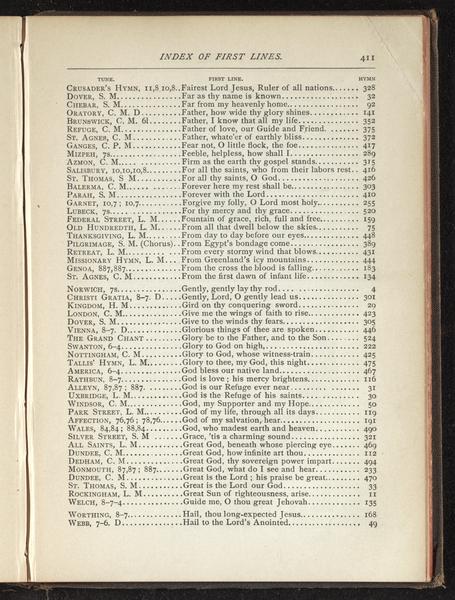 INDEX OF FIRST LINES. 411
TUNE. FIRST LINE. HYMN
CRUSADER'S HYMN, 11,8 10,8..Fairest Lord Jesus, Ruler of all nations...... 328
DOVER, S. M...............Far as thy name is known................... 32
CHEBAR, S. M..............Far from my heavenly home................. 92
ORATORY, C. M. D.........Father, how wide thy glory shines........... 141
BRUNSWICK, C. M. 6l......Father, I know that all my life.............. 352
REFUGE, C. M..............Father of love, our Guide and Friend........ 375
ST. AGNES, C. M...........Father, whate'er of earthly bliss............. 372
GANGES, C. P. M..........Fear not, O little flock, the foe.............. 417
MIZPEH, 7s................Feeble, helpless, how shall I................ 289
AZMON, C. M..............Firm as the earth thy gospel stands.......... 315
SALISBURY, 10,10,10,8......For all the saints, who from their labors rest.. 416
ST. THOMAS, S M..........For all thy saints, O God................... 426
BALERMA, C. M............Forever here my rest shall be............... 303
PARAH, S. M...............Forever with the Lord..................... 410
GARNET, 10,7; 10,7........Forgive my folly, O Lord most holy......... 255
LUBECK, 7s................For thy mercy and thy grace............... 520
FEDERAL STREET, L. M.....Fountain of grace, rich, full and free........ 159
OLD HUNDREDTH, L. M.....From all that dwell below the skies.......... 75
THANKSGIVING, L. M.......From day to day before our eyes............ 448
PILGRIMAGE, S. M. (Chorus)..From Egypt's bondage come............... 389
RETREAT, L. M............From every stormy wind that blows......... 431
MISSIONARY HYMN, L. M...From Greenland's icy mountains............ 444
GENOA, 887,887............From the cross the blood is falling........... 183
ST. AGNES, C. M...........From the first dawn of infant life............ 134
NORWICH, 7s..............Gently, gently lay thy rod.................. 4
CHRISTI GRATIA, 8-7. D.....Gently, Lord, O gently lead us.............. 301
KINGDOM, H. M............Gird on thy conquering sword.............. 29
LONDON, C. M.............Give me the wings of faith to rise............ 423
DOVER, S. M...............Give to the winds thy fears................. 305
VIENNA, 8-7. D............Glorious things of thee are spoken........... 446
THE GRAND CHANT........Glory be to the Father, and to the Son....... 524
SWANTON, 6-4.............Glory to God on high,..................... 222
NOTTINGHAM, C. M........Glory to God, whose witness-train........... 425
TALLIS' HYMN, L. M.......Glory to thee, my God, this night........... 475
AMERICA, 6-4..............God bless our native land.................. 467
RATHBUN. 8-7.............God is love; his mercy brightens............ 116
ALLEYN, 87,87; 887.........God is our Refuge ever near................ 31
UXBRIDGE, L. M...........God is the Refuge of his saints.............. 30
WINDSOR, C. M............God, my Supporter and my Hope........... 50
PARK STREET, L. M........God of my life, through all its days.......... 119
AFFECTION, 76,76; 78,76....God of my salvation, hear.................. 191
WALES, 84,84; 88,84........God, who madest earth and heaven......... 490
SILVER STREET, S. M.......Grace, 'tis a charming sound............... 321
ALL SAINTS, L. M..........Great God, beneath whose piercing eye...... 469
DUNDEE, C. M.............Great God, how infinite art thou............ 112
DEDHAM, C. M............Great God, thy sovereign power impart...... 494
MONMOUTH, 87,87; 887.....Great God, what do I see and hear.......... 233
DUNDEE, C. M.............Great is the Lord; his praise be great........ 470
ST. THOMAS, S. M..........Great is the Lord our God.................. 33
ROCKINGHAM, L. M........Great Sun of righteousness, arise............ 11
WELCH, 8-7-4..............Guide me, O thou great Jehovah............ 135
WORTHING, 8-7............Hail, thou long-expected Jesus.............. 168
WEBB, 7-6. D..............Hail to the Lord's Anointed................. 49